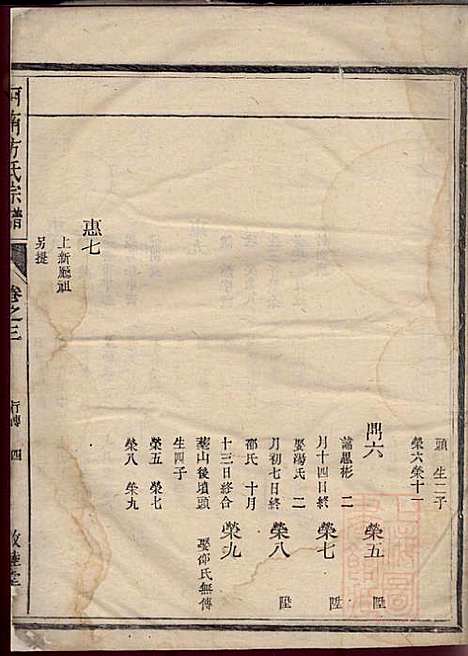 頭 生二子
榮六榮十一
鼎六 榮五 陞
諱思彬 二
月十四日終 榮七 陞
娶湯氏 二
月初七日終 榮八 陞
邵氏 十月
十三日終合 榮九
葬山後墳頭 娶邵氏無傳
生四子
榮五 榮七
榮八 榮九
惠七
上新廳祖
另提
河南方氏宗譜
卷之三
行傳 四
敦睦堂